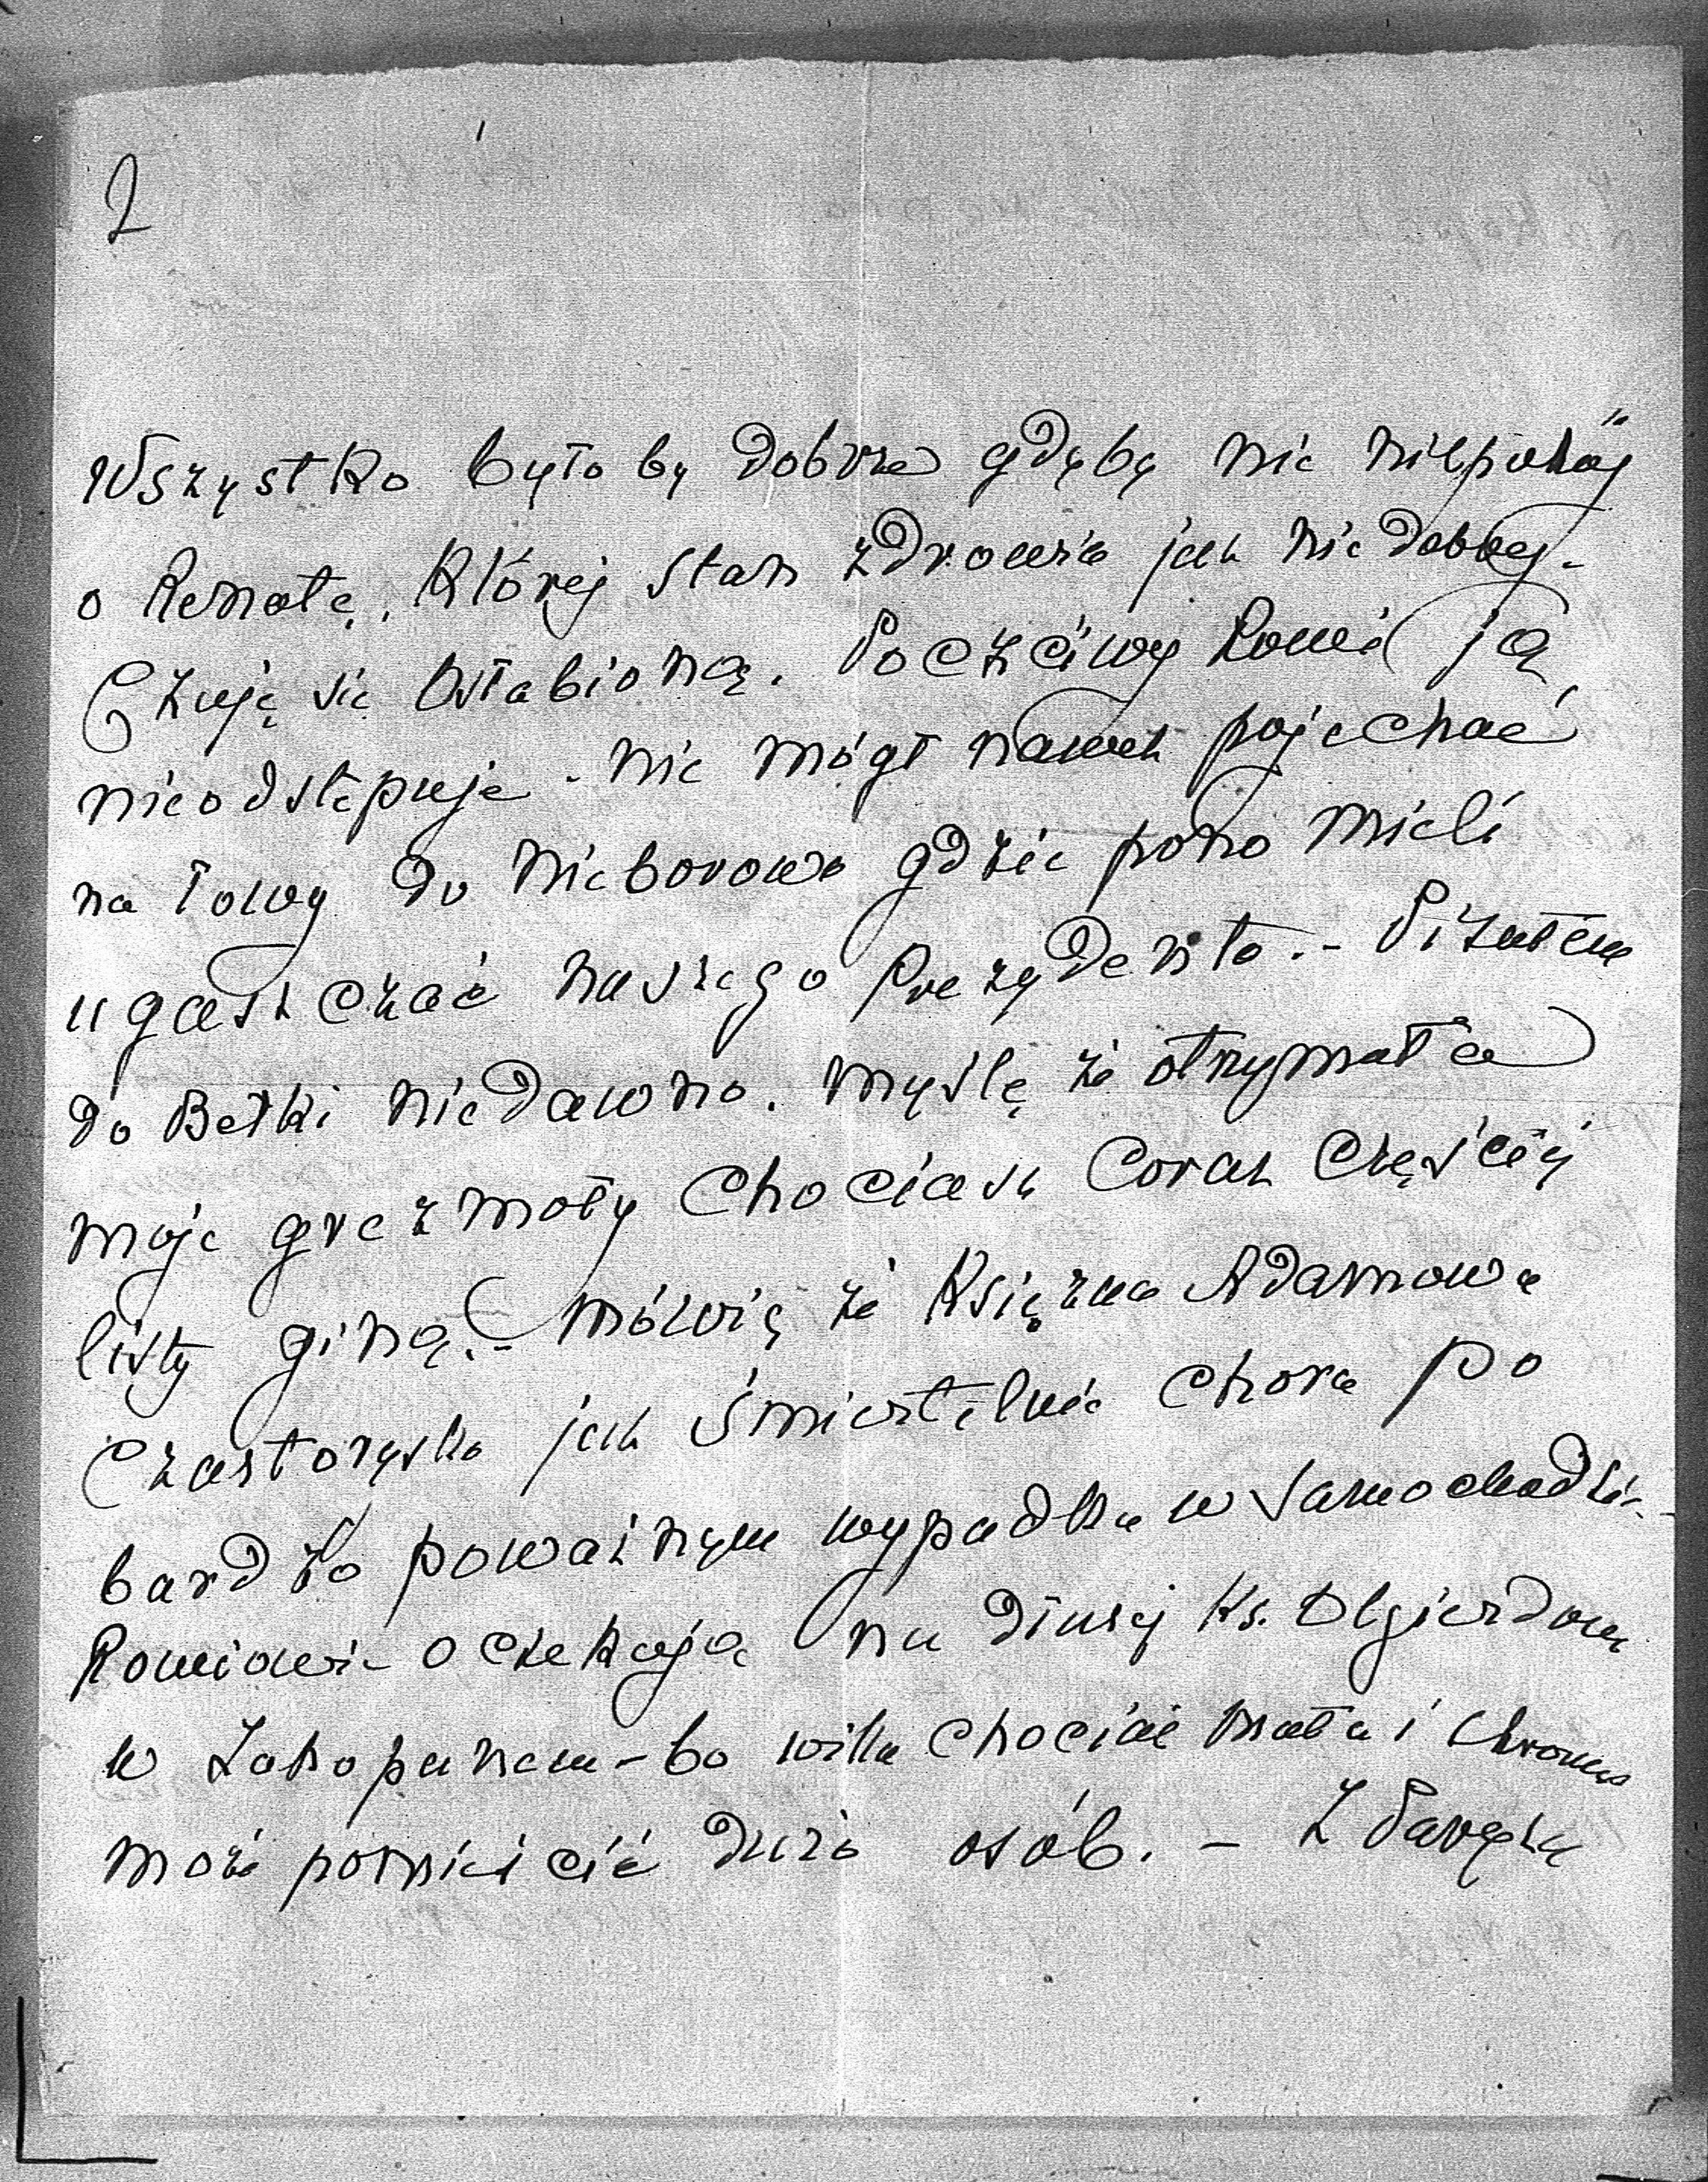 2
Wszystko było by dobrze gdyby nie niepokój
o Renatę, której stan zdrowia jak niedobry -
Czuję się osłabioną. Poczciwy Romi ją
nieodstępuje - nie mógł nawet pojechać
na łowy do Nieborowa gdzie pono mieli
ugaszczać naszego Prezydenta. - Pisałam
do Betki niedawno. Myślę że otrzymała
moje grezmoły chociasz coraz częściej
listy giną. - Mówią że Księżna Adamowa
Czartoryska jak śmiertelnie chora po
bardzo poważnym wypadku w samochodzie -
Romiowie oczekują na dłużej Ks. Olgierdową
w Zakopanem - bo willa chociaż mała i
może pomieścić dużo osób. - Z Paryża